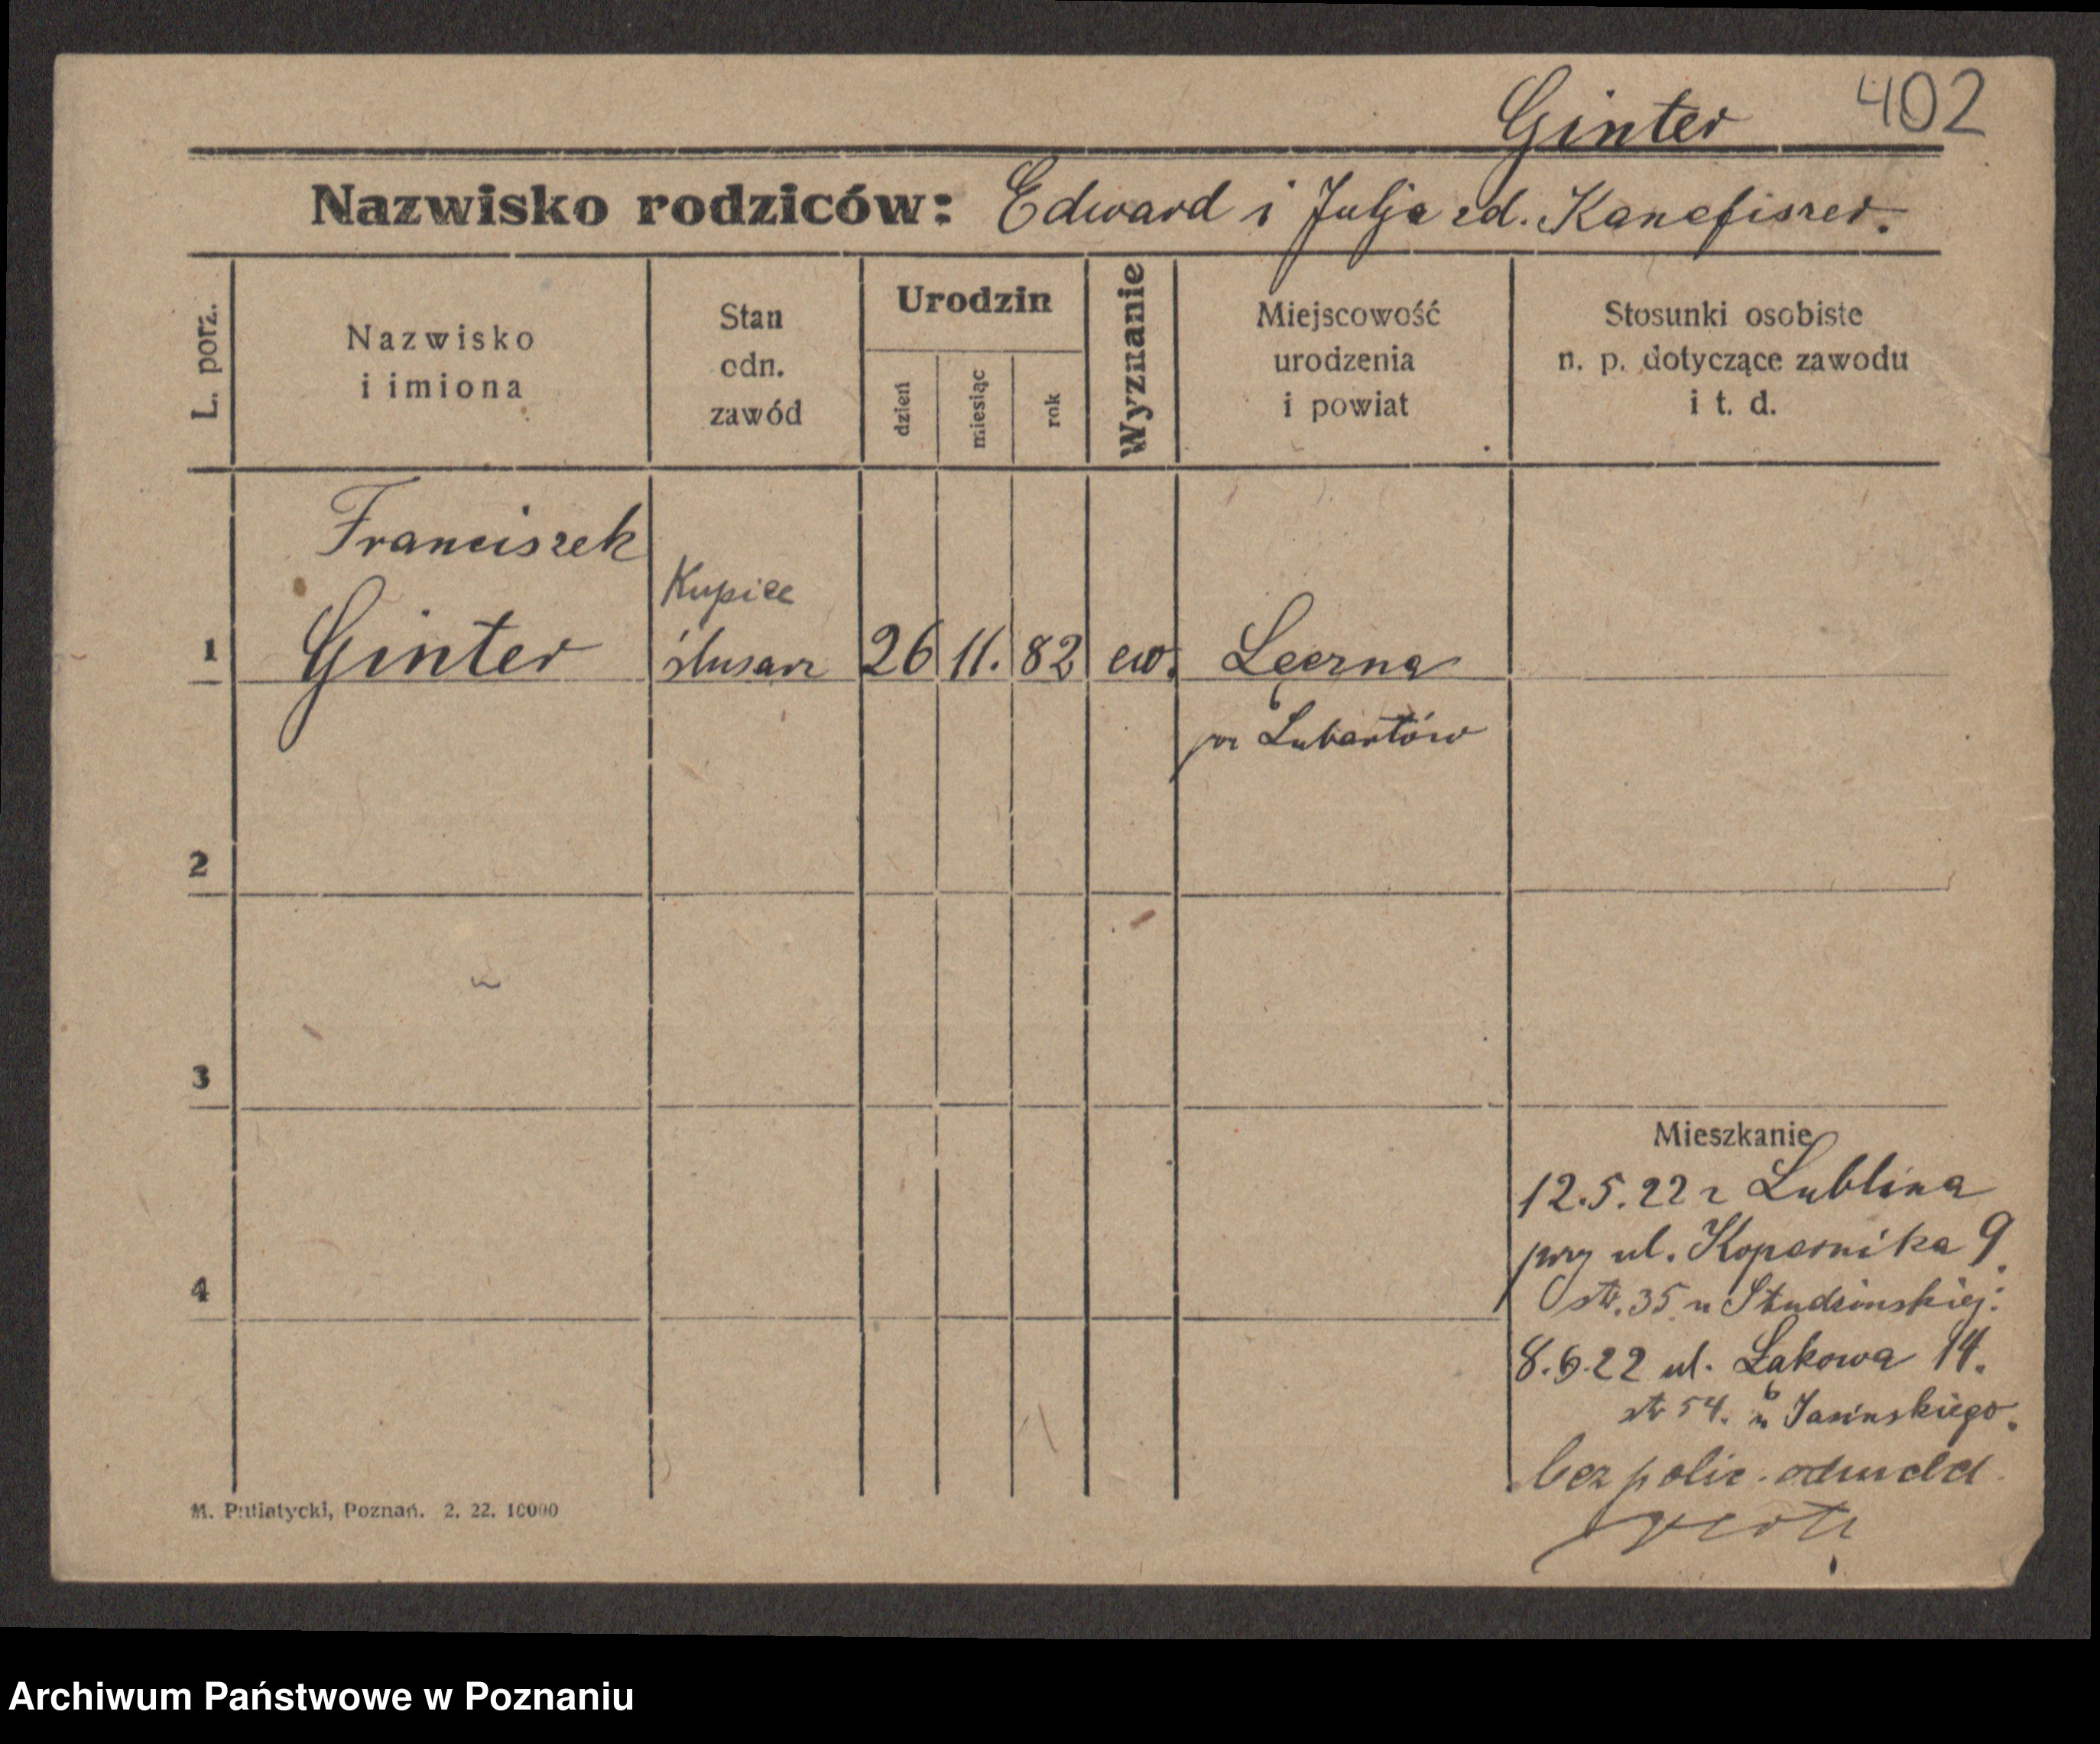 Ginter 402
Nazwisko rodziców: Edward i Julja zd. Kanefiszer.
L. porz.
Nazwisko
i imiona
Stan
odn.
zawód
Urodzin
dzień
miesiąc
rok
Wyznanie
Miejscowość
urodzenia
i powiat
Stosunki osobiste
n. p. dotyczące zawodu
i t. d.
Franciszek
Kupiec
1 Ginter ślusarz 26 11. 82 ew. Łęczna
pow Lubartów
2
3
Mieszkanie
12.5.22 z Lublina
przy ul. Kopernika 9.
4
str. 35 u Studzinskiej.
8.6.22 ul. Łąkowa 14.
str 54. u Jasinskiego.
bez polic. odmeld.
M. Putiatycki, Poznań. 2. 22. 10000
Archiwum Państwowe w Poznaniu